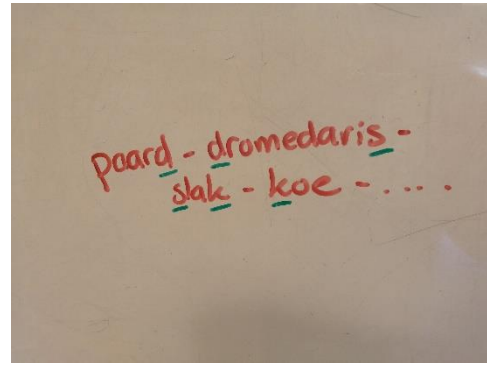 paard - dromedaris -
slak - koe - ....